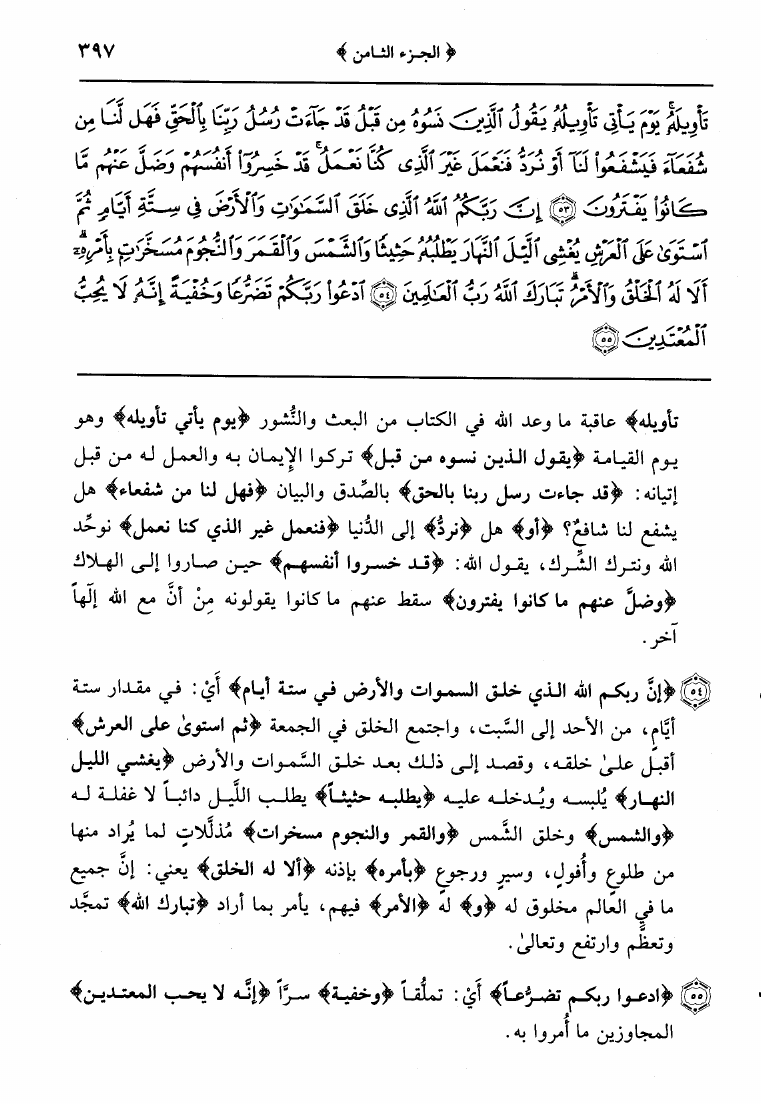 ﴿ الجـزء الثـامن ﴾ ٣٩٧
تَأْوِيلَهُۥ يَوْمَ يَأْتِى تَأْوِيلُهُۥ يَقُولُ ٱلَّذِينَ نَسُوهُ مِن قَبْلُ قَدْ جَآءَتْ رُسُلُ رَبِّنَا بِٱلْحَقِّ فَهَل لَّنَا مِن
شُفَعَآءَ فَيَشْفَعُوا۟ لَنَآ أَوْ نُرَدُّ فَنَعْمَلَ غَيْرَ ٱلَّذِى كُنَّا نَعْمَلُ ۚ قَدْ خَسِرُوٓا۟ أَنفُسَهُمْ وَضَلَّ عَنْهُم مَّا
كَانُوا۟ يَفْتَرُونَ ۝٥٣ إِنَّ رَبَّكُمُ ٱللَّهُ ٱلَّذِى خَلَقَ ٱلسَّمَـٰوَٰتِ وَٱلْأَرْضَ فِى سِتَّةِ أَيَّامٍ ثُمَّ
ٱسْتَوَىٰ عَلَى ٱلْعَرْشِ يُغْشِى ٱلَّيْلَ ٱلنَّهَارَ يَطْلُبُهُۥ حَثِيثًا وَٱلشَّمْسَ وَٱلْقَمَرَ وَٱلنُّجُومَ مُسَخَّرَٰتٍۭ بِأَمْرِهِۦٓ ۗ
أَلَا لَهُ ٱلْخَلْقُ وَٱلْأَمْرُ ۗ تَبَارَكَ ٱللَّهُ رَبُّ ٱلْعَـٰلَمِينَ ۝٥٤ ٱدْعُوا۟ رَبَّكُمْ تَضَرُّعًا وَخُفْيَةً ۚ إِنَّهُۥ لَا يُحِبُّ
ٱلْمُعْتَدِينَ ۝٥٥
تأويله﴾ عاقبة ما وعد الله في الكتاب من البعث والنُّشور ﴿يوم يأتي تأويله﴾ وهو
يـوم القيـامـة ﴿يقـول الـذيـن نسـوه مـن قبـل﴾ تـركـوا الإيـمـان بـه والعمـل لـه مـن قبل
إتيانه: ﴿قد جاءت رسل ربنا بالحق﴾ بالصِّدق والبيان ﴿فهل لنا من شفعاء﴾ هل
يشفع لنا شافعٌ؟ ﴿أو﴾ هل ﴿نردُّ﴾ إلى الدُّنيا ﴿فنعمل غير الذي كنا نعمل﴾ نوحِّد
الله ونتـرك الشِّـرك، يقـول الله: ﴿قـد خسـروا أنفسـهـم﴾ حيـن صـاروا إلـى الهـلاك
﴿وضلَّ عنهم ما كانوا يفترون﴾ سقط عنهم ما كانوا يقولونه مِنْ أنَّ مع الله إلٓهاً
آخر.
۝٥٤ ﴿إنَّ ربكـم الله الـذي خلـق السمـوات والأرض فـي ستـة أيـام﴾ أَيْ: فـي مقـدار ستـة
أيَّام، من الأحد إلى السَّبت، واجتمع الخلق في الجمعة ﴿ثم استوىٰ على العرش﴾
أقبـل علـىٰ خلقـه، وقصـد إلـى ذلـك بعـد خلـق السَّمـوات والأرض ﴿يغشـي الليـل
النهـار﴾ يُلبسـه ويُـدخلـه عليـه ﴿يطلبـه حثيثـاً﴾ يطلـب اللَّيـل دائبـاً لا غفلـة لـه
﴿والشمس﴾ وخلق الشَّمس ﴿والقمر والنجوم مسخرات﴾ مُذلَّلاتٍ لما يُراد منها
من طلوعٍ وأُفولٍ، وسيرٍ ورجوعٍ ﴿بأمره﴾ بإذنه ﴿ألا له الخلق﴾ يعني: إنَّ جميع
ما في العالم مخلوق له ﴿و﴾ له ﴿الأمر﴾ فيهم، يأمر بما أراد ﴿تبارك الله﴾ تمجَّد
وتعظَّم وارتفع وتعالىٰ.
۝٥٥ ﴿ادعـوا ربكـم تضـرُّعـاً﴾ أَيْ: تملُّقـاً ﴿وخفيـة﴾ سـرَّاً ﴿إنَّـه لا يحـب المعتـديـن﴾
المجاوزين ما أُمروا به.